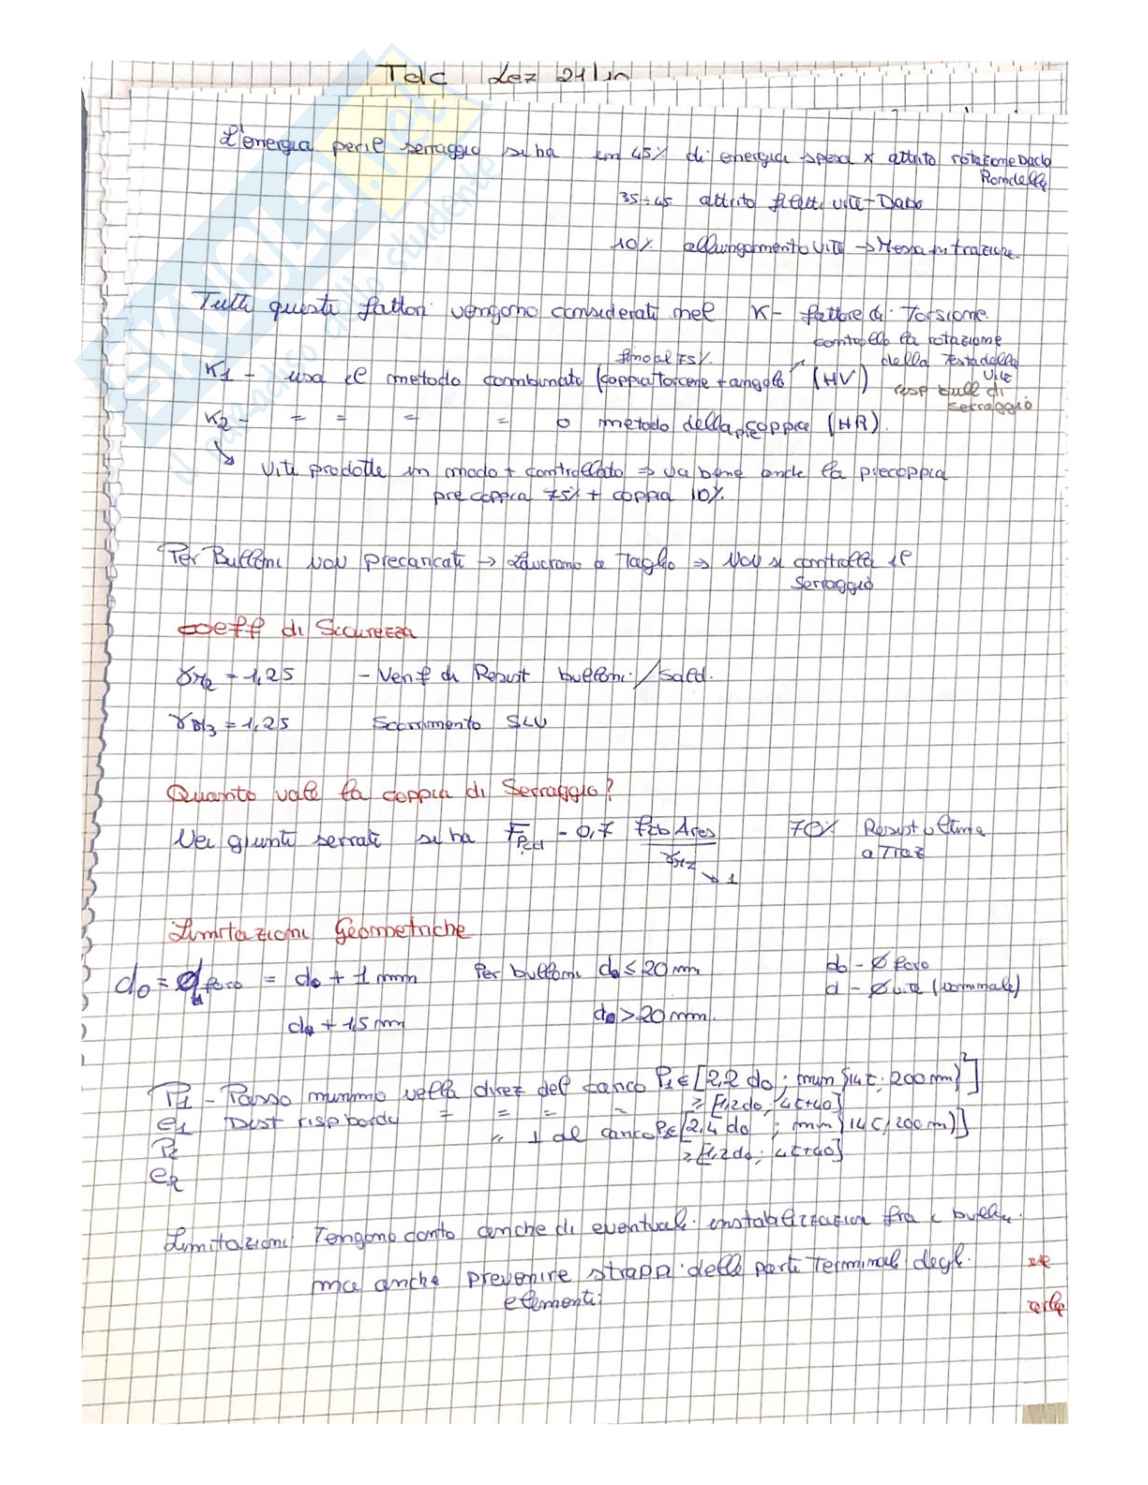 Tdc Lez 21/10
L'energia per il serraggio si ha un 45% di energia spesa x attrito rotazione Dado
Rondella
35÷45 attrito filetti vite-Dado
10% allungamento vite → Messa in trazione
Tutti questi fattori vengono considerati nel K- fattore di Torsione
controllo la rotazione
fino al 75% della Testa della
K1 - usa il metodo combinato (coppia torcente + angolo) (HV) Vite
risp bull di
serraggio
K2 - = = = = o metodo della precoppia (HR).
↳ Viti prodotte in modo + controllato ⇒ va bene anche la precoppia
precoppia 75% + coppia 10%
Per Bulloni NON precaricati → Lavorano a Taglio ⇒ NON si controlla il
Serraggio
coeff di Sicurezza
γM2 = 1,25 - Verif di Resist bulloni/sald.
γM3 = 1,25 Scorrimento SLU
Quanto vale la coppia di Serraggio?
Nei giunti serrati si ha FP,Cd = 0,7 ftb Ares / γM2 → 1 70% Resist ultima
a Traz
Limitazioni Geometriche
d0 = dforo = d + 1 mm Per bulloni d ≤ 20 mm d0 - Ø foro
d - Ø vite (nominale)
d + 1,5 mm d > 20 mm.
P1 - Passo minimo nella direz del carico P1 ∈ [2,2 d0 ; min {14 t ; 200 mm}]
e1 Dist risp bordo = = = = ≥ [1,2 d0 ; 4t+40]
P2 " ⊥ al carico P2 ∈ [2,4 d0 ; min {14 t/200 m}]
≥ [1,2 d0 ; 4t+40]
e2
Limitazioni Tengono conto anche di eventuali instabilizzazioni fra i bulloni
ma anche prevenire strappi delle parti Terminali degli
elementi